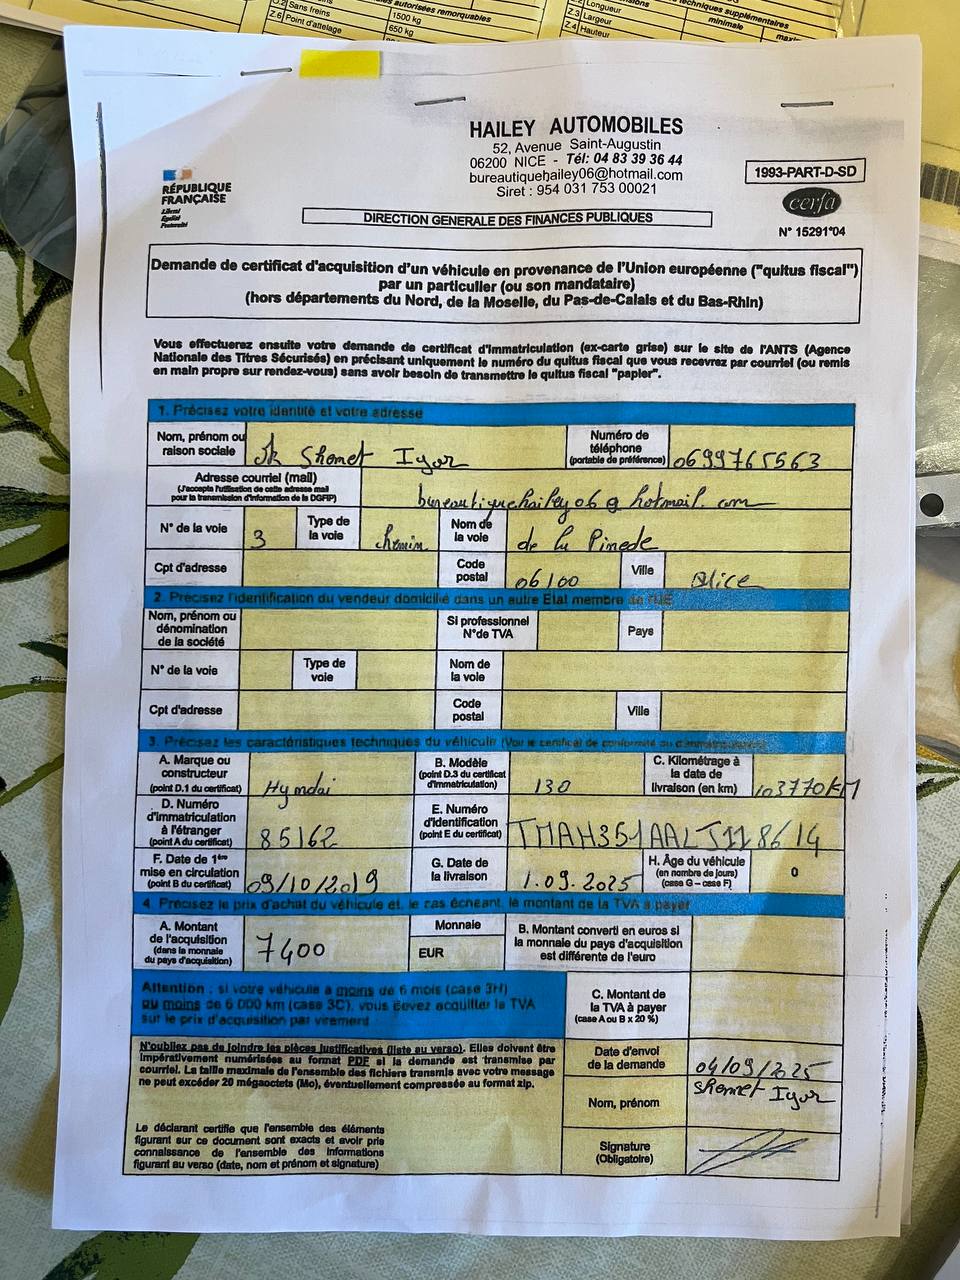 autorisées remorquables
O.2 Sans freins
1500 kg
Z.6 Point d'attelage
650 kg
techniques supplémentaires
Z.2 Longueur
Z.3 Largeur
Z.4 Hauteur
minimale
HAILEY AUTOMOBILES
52, Avenue Saint-Augustin
06200 NICE - Tél: 04 83 39 36 44
bureautiquehailey06@hotmail.com
Siret : 954 031 753 00021
RÉPUBLIQUE
FRANÇAISE
Liberté
Égalité
Fraternité
1993-PART-D-SD
cerfa
N° 15291*04
DIRECTION GENERALE DES FINANCES PUBLIQUES
Demande de certificat d'acquisition d'un véhicule en provenance de l'Union européenne ("quitus fiscal")
par un particulier (ou son mandataire)
(hors départements du Nord, de la Moselle, du Pas-de-Calais et du Bas-Rhin)
Vous effectuerez ensuite votre demande de certificat d'immatriculation (ex-carte grise) sur le site de l'ANTS (Agence
Nationale des Titres Sécurisés) en précisant uniquement le numéro du quitus fiscal que vous recevrez par courriel (ou remis
en main propre sur rendez-vous) sans avoir besoin de transmettre le quitus fiscal "papier".
1. Précisez votre identité et votre adresse
Nom, prénom ou
raison sociale
Shemet Igor
Numéro de
téléphone
(portable de préférence)
0699765563
Adresse courriel (mail)
(J'accepte l'utilisation de cette adresse mail
pour la transmission d'information de la DGFIP)
bureautiquehailey06@hotmail.com
N° de la voie
3
Type de
la voie
chemin
Nom de
la voie
de la Pinede
Cpt d'adresse
Code
postal
06100
Ville
Nice
2. Précisez l'identification du vendeur domicilié dans un autre Etat membre de l'UE
Nom, prénom ou
dénomination
de la société
Si professionnel
N°de TVA
Pays
N° de la voie
Type de
voie
Nom de
la voie
Cpt d'adresse
Code
postal
Ville
3. Précisez les caractéristiques techniques du véhicule (Voir le certificat de conformité ou d'immatriculation)
A. Marque ou
constructeur
(point D.1 du certificat)
Hyndai
B. Modèle
(point D.3 du certificat
d'immatriculation)
130
C. Kilométrage à
la date de
livraison (en km)
103770KM
D. Numéro
d'immatriculation
à l'étranger
(point A du certificat)
85162
E. Numéro
d'identification
(point E du certificat)
TMAH351AALJ118614
F. Date de 1ère
mise en circulation
(point B du certificat)
09/10/2019
G. Date de
la livraison
1.09.2025
H. Âge du véhicule
(en nombre de jours)
(case G – case F)
0
4. Précisez le prix d'achat du véhicule et, le cas échéant, le montant de la TVA à payer
A. Montant
de l'acquisition
(dans la monnaie
du pays d'acquisition)
7400
Monnaie
EUR
B. Montant converti en euros si
la monnaie du pays d'acquisition
est différente de l'euro
Attention : si votre véhicule a moins de 6 mois (case 3H)
ou moins de 6 000 km (case 3C), vous devez acquitter la TVA
sur le prix d'acquisition par virement
C. Montant de
la TVA à payer
(case A ou B x 20 %)
N'oubliez pas de joindre les pièces justificatives (liste au verso). Elles doivent être
impérativement numérisées au format PDF si la demande est transmise par
courriel. La taille maximale de l'ensemble des fichiers transmis avec votre message
ne peut excéder 20 mégaoctets (Mo), éventuellement compressée au format zip.
Date d'envoi
de la demande
04/09/2025
Nom, prénom
Shemet Igor
Le déclarant certifie que l'ensemble des éléments
figurant sur ce document sont exacts et avoir pris
connaissance de l'ensemble des informations
figurant au verso (date, nom et prénom et signature)
Signature
(Obligatoire)